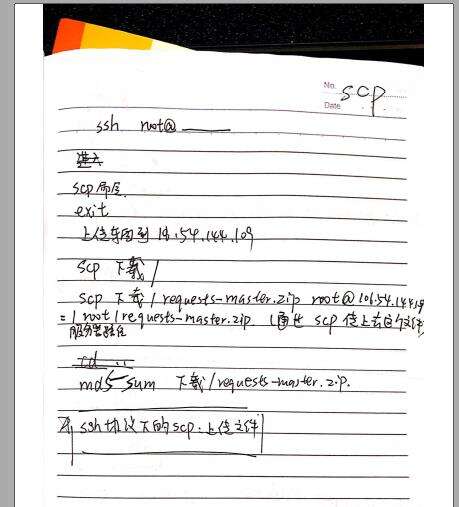 No. scp
Date
ssh root@
scp命令
exit
上传到 .54.144.109
scp 下载/
scp 下载/requests-master.zip root@106.54.144.109
=/root/requests-master.zip. (通过 scp 传上去的文件)
服务器路径
cd ..
md5sum 下载/requests-master.zip.
ssh协议下的scp.上传文件